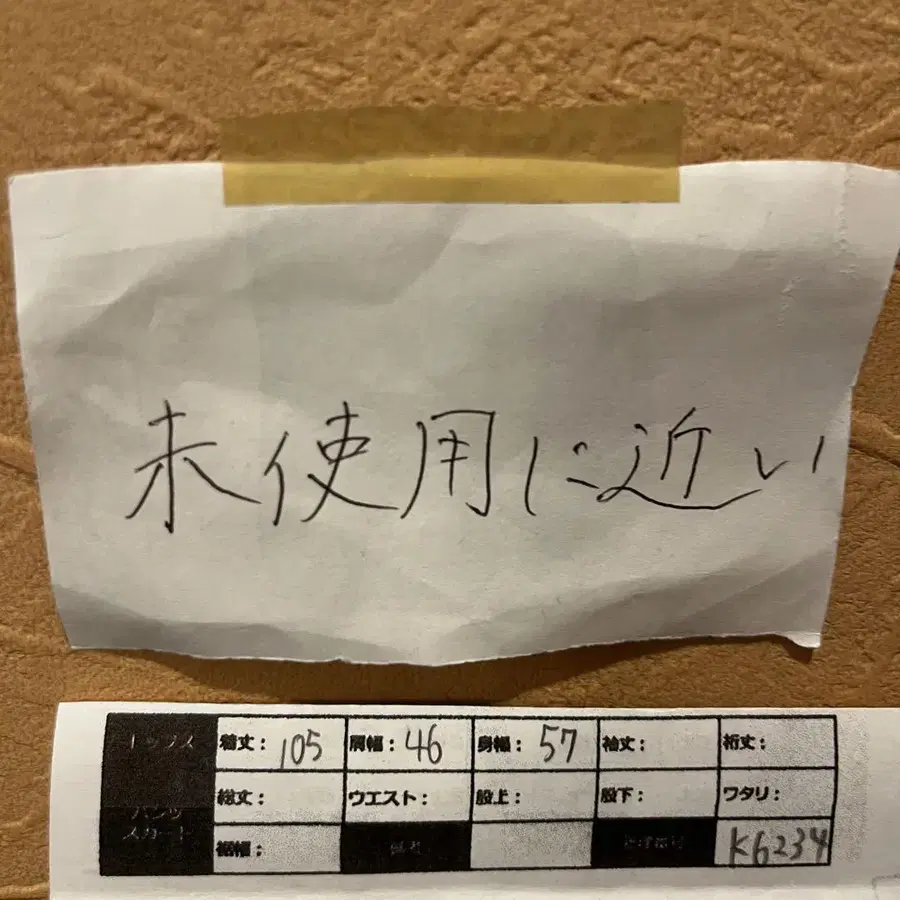 未使用に近い
トップス 着丈: 105 肩幅: 46 身幅: 57 袖丈: 裄丈:
パンツ スカート 総丈: ウエスト: 股上: 股下: ワタリ:
裾幅: 備考 K6234